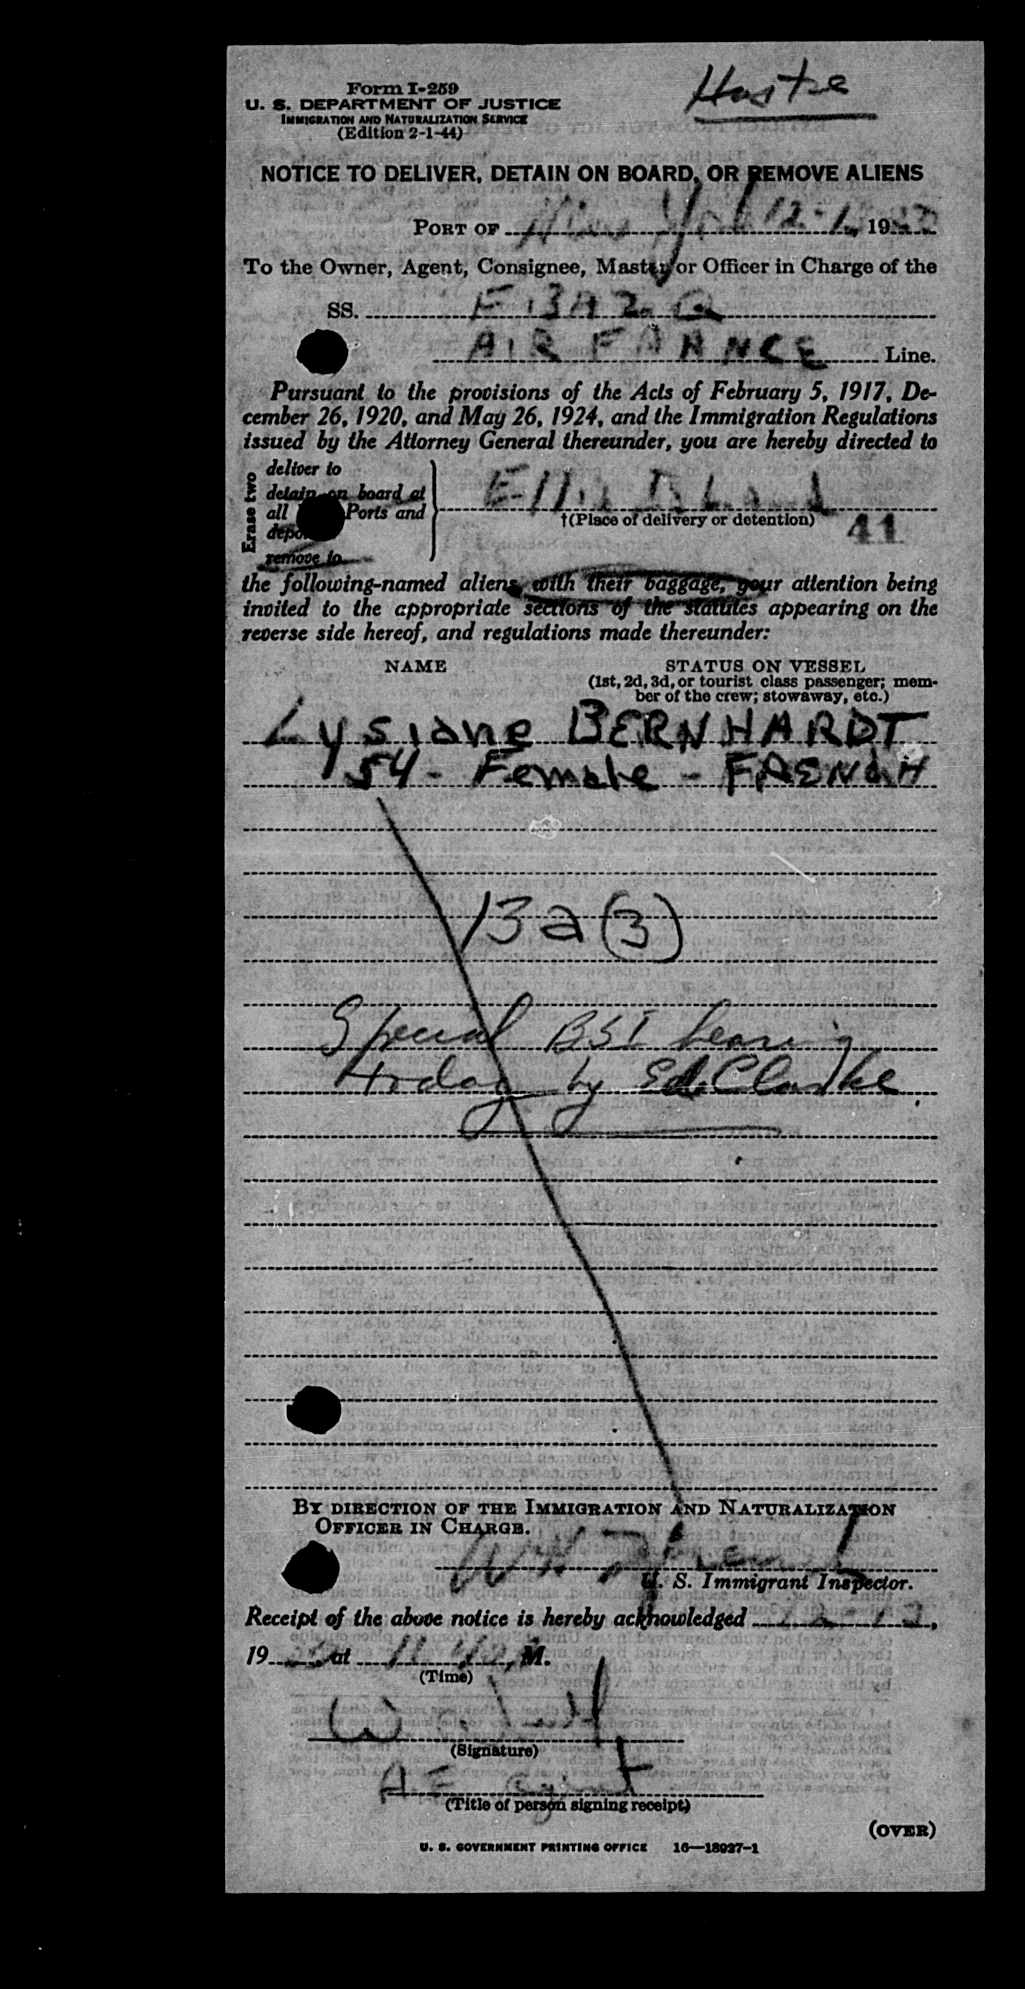 Form I-259
U. S. DEPARTMENT OF JUSTICE
IMMIGRATION AND NATURALIZATION SERVICE
(Edition 2-1-44)
NOTICE TO DELIVER, DETAIN ON BOARD, OR REMOVE ALIENS
PORT OF New York 12-1 19
To the Owner, Agent, Consignee, Master or Officer in Charge of the
SS. F BAZQ
AIR FRANCE Line.
Pursuant to the provisions of the Acts of February 5, 1917, De-
cember 26, 1920, and May 26, 1924, and the Immigration Regulations
issued by the Attorney General thereunder, you are hereby directed to
Erase two
deliver to
detain on board at
all Ports and
remove to
Ellis Island
†(Place of delivery or detention)
41
the following-named aliens, with their baggage, your attention being
invited to the appropriate sections of the statutes appearing on the
reverse side hereof, and regulations made thereunder:
NAME STATUS ON VESSEL
(1st, 2d, 3d, or tourist class passenger; mem-
ber of the crew; stowaway, etc.)
Lysiane BERNHARDT
54 - Female - FRENCH
13 a (3)
Special BSI hearing
today by Ed. Clarke
BY DIRECTION OF THE IMMIGRATION AND NATURALIZATION
OFFICER IN CHARGE.
U. S. Immigrant Inspector.
Receipt of the above notice is hereby acknowledged 12-12,
19 at 11 40 M.
(Time)
(Signature)
AF agent
(Title of person signing receipt)
(OVER)
U. S. GOVERNMENT PRINTING OFFICE 16—18927-1